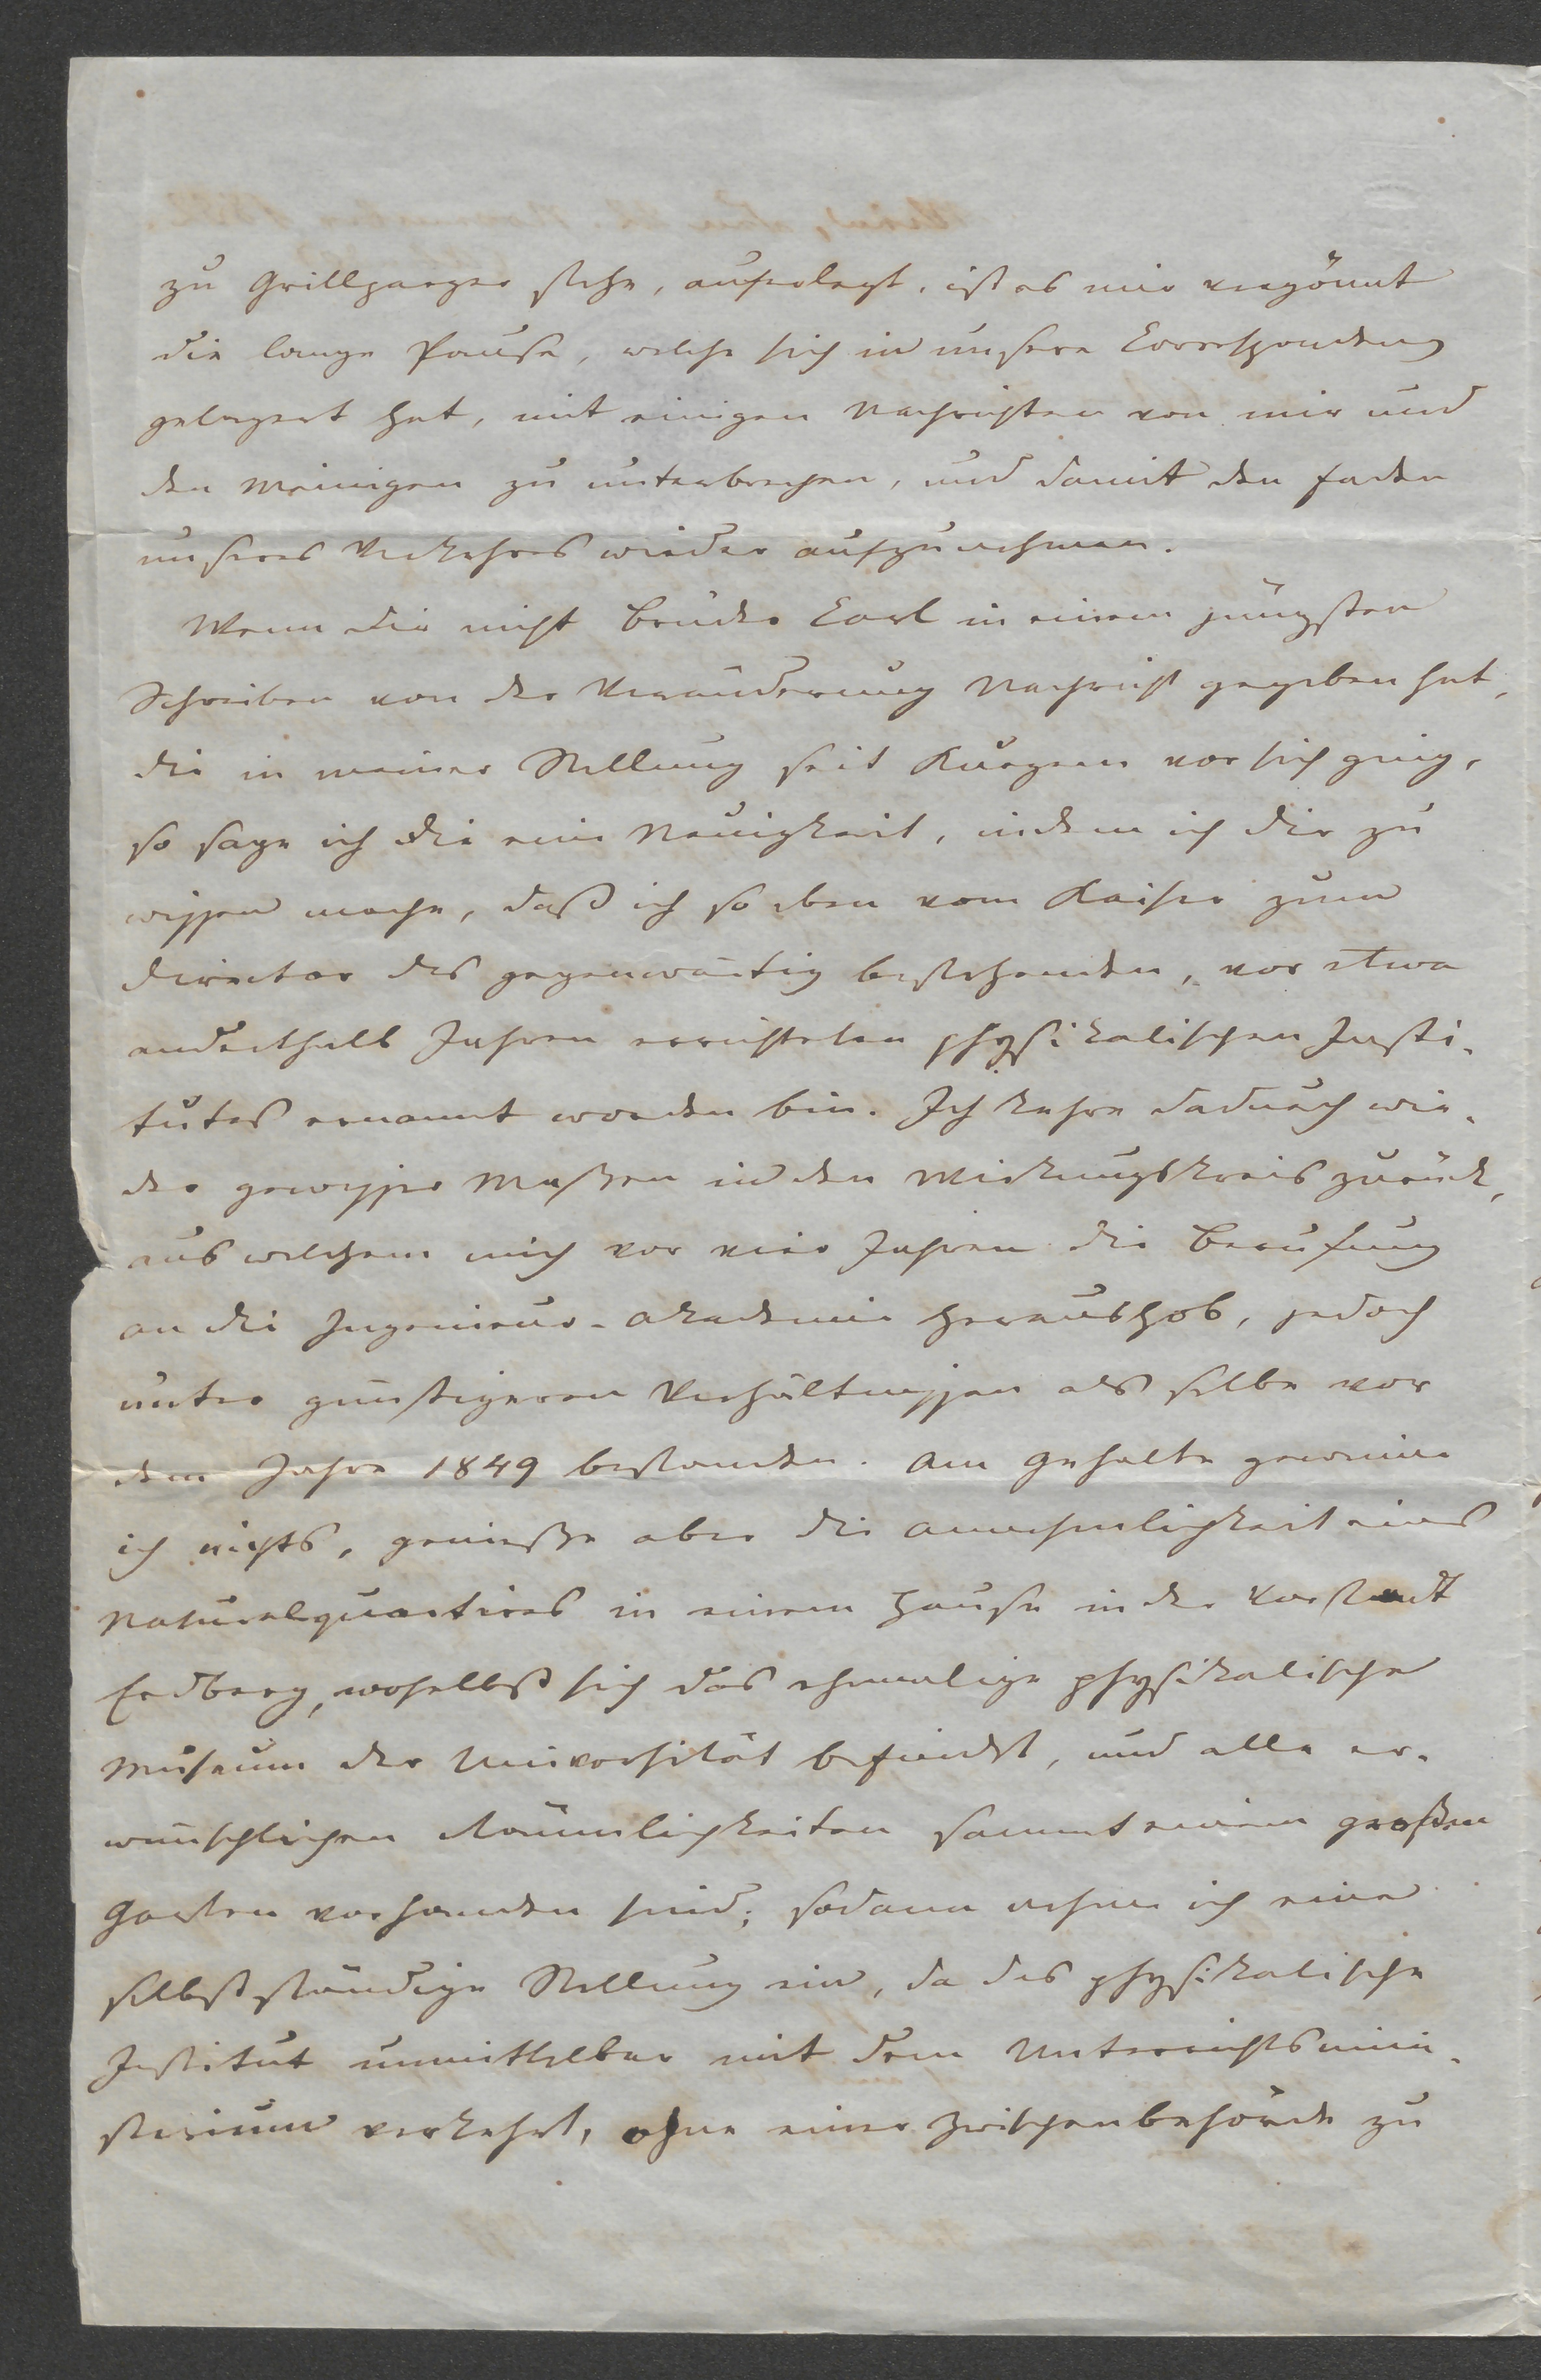 zu Grillparzer stehe, auferlegt, ist es mir vergönnt
die lange Pause, welche sich in unsere Correspondenz
gelagert hat, mit einigen Nachrichten von mir und
den Meinigen zu unterbrechen, und damit den Faden
unseres Verkehres wieder aufzunehmen.
Wenn dir nicht Bruder Carl in einem jüngsten
Schreiben von der Veränderung Nachricht gegeben hat,
die in meiner Stellung seit Kurzem vor sich ging,
so sage ich dir eine Neuigkeit, indem ich dir zu
wissen mache, daß ich so eben vom Kaiser zum
Director des gegenwärtig bestehenden, vor etwa
anderthalb Jahren errichteten physikalischen Insti-
tutes ernannt worden bin. Ich kehre dadurch wie-
der gewisser Maßen in den Wirkungskreis zurück,
aus welchem mich vor vier Jahren die Berufung
an die Ingenieur-Akademie heraushob, jedoch
unter günstigeren Verhältnissen als selbe vor
dem Jahre 1849 bestanden. Am Gehalte gewinne
ich nichts, genieße aber die Annehmlichkeit eines
Naturalquartieres in einem Hause in der Vorstadt
Erdberg, woselbst sich das ehemalige physikalische
Museum der Universität befindet, und alle er-
wünschlichen Räumlichkeiten sammt einem großen
Garten vorhanden sind; sodann nehme ich eine
selbstständige Stellung ein, da das physikalische
Institut unmittelbar mit dem Unterrichtsmini-
sterium verkehrt, ohne einer Zwischenbehörde zu